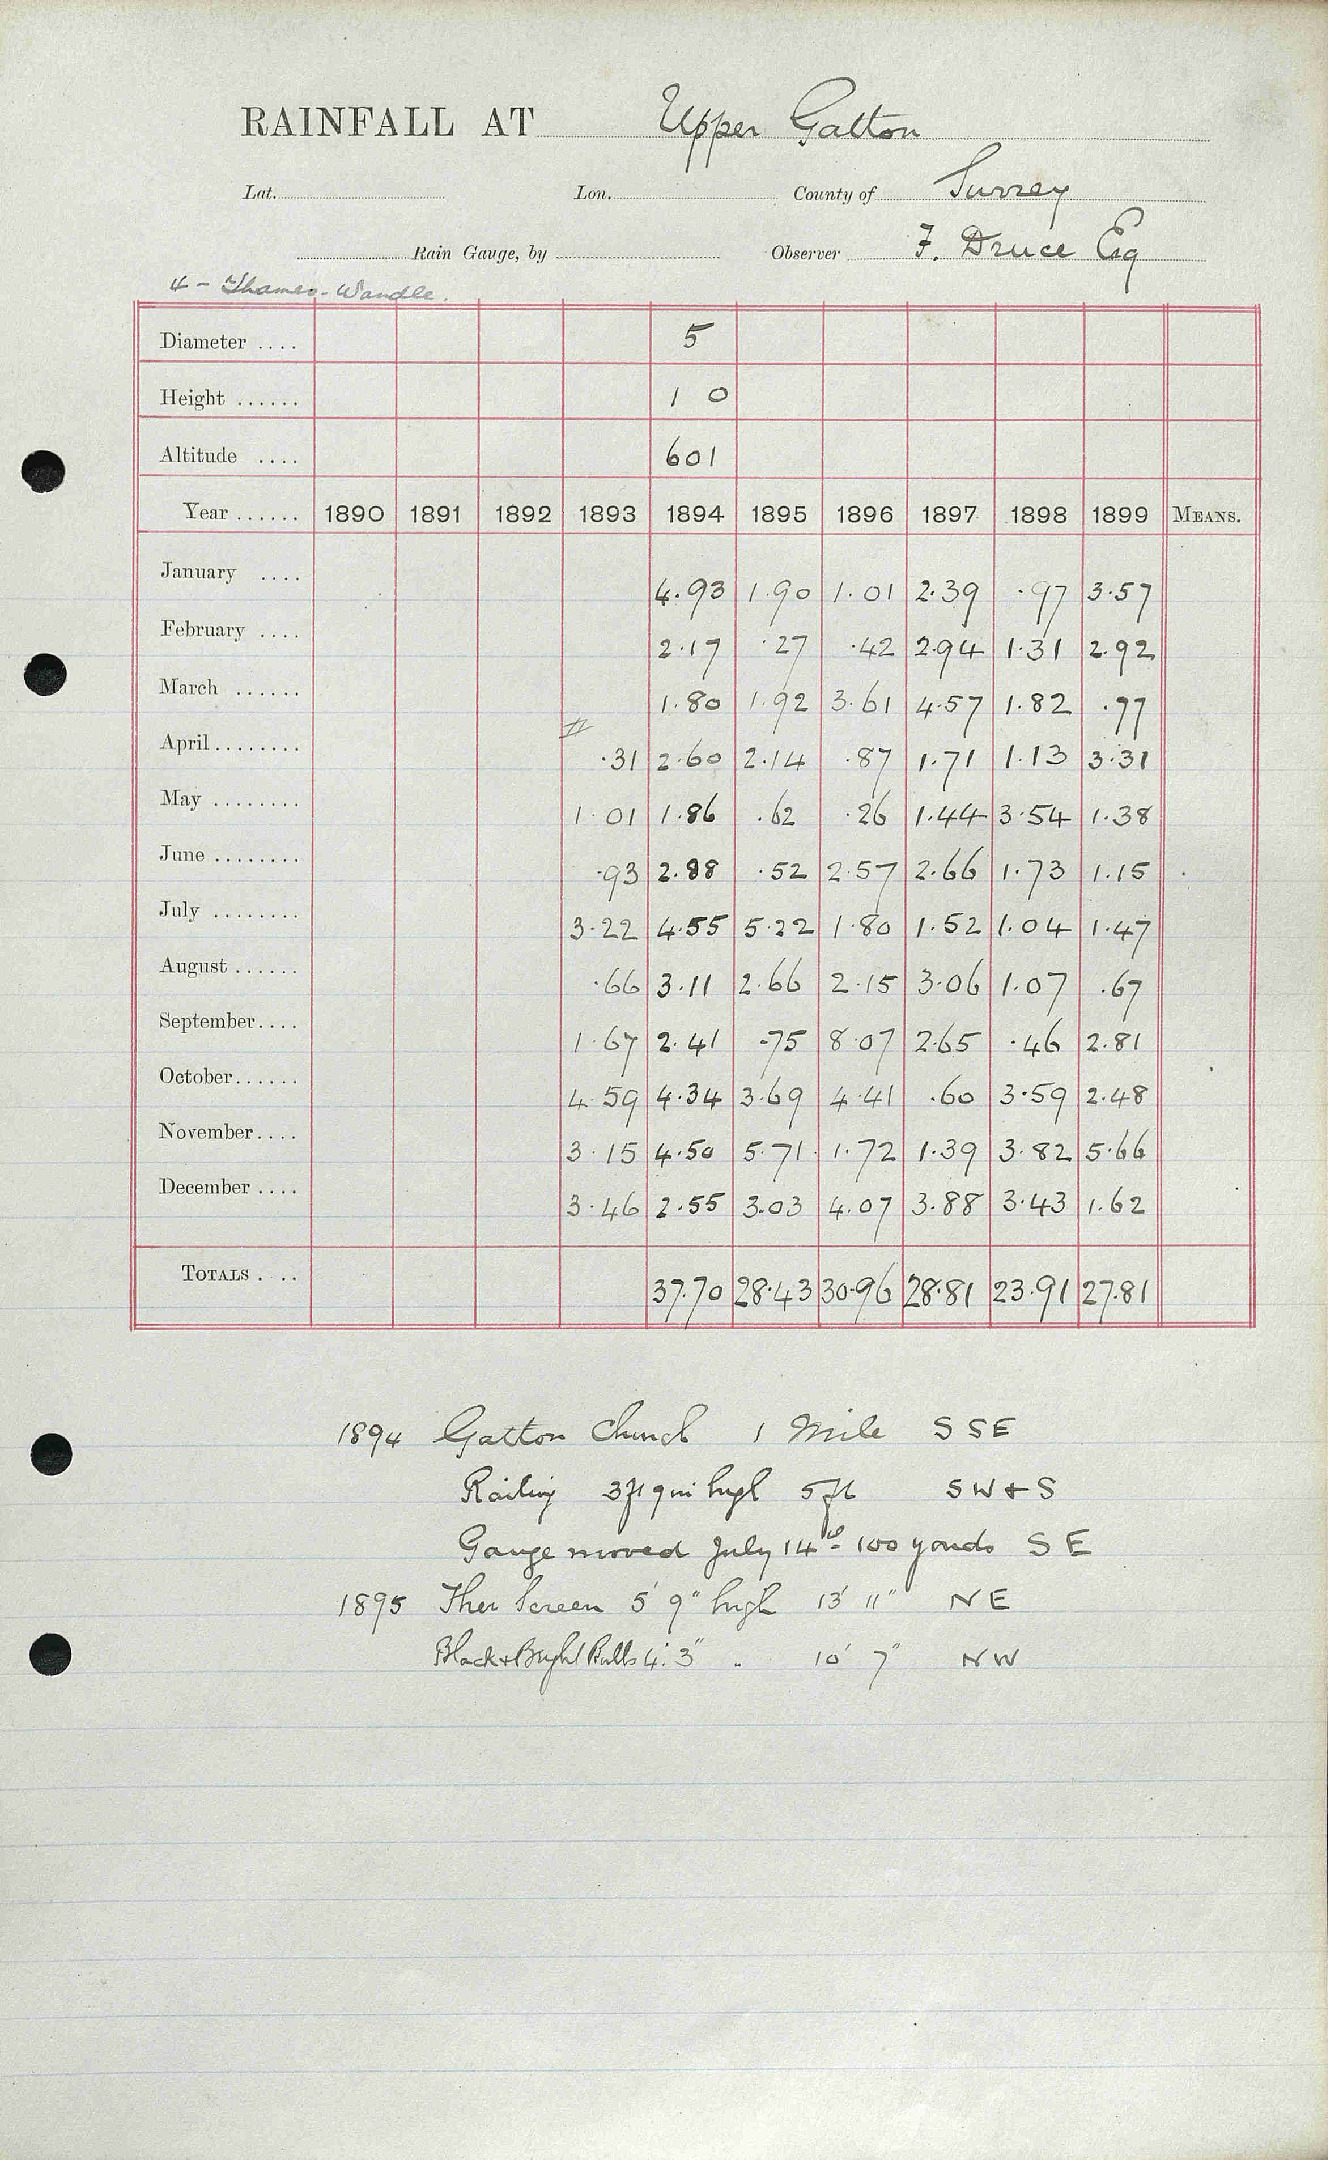 RAINFALL AT Upper Gatton
Lat. Lon. County of Surrey
Rain Gauge, by Observer F. Druce Esq
4 - Thames - Wandle.
Diameter .... 5
Height ...... 1 0
Altitude .... 601
Year ...... 1890 1891 1892 1893 1894 1895 1896 1897 1898 1899 MEANS.
January .... 4.93 1.90 1.01 2.39 .97 3.57
February .... 2.17 .27 .42 2.94 1.31 2.92
March ...... 1.80 1.92 3.61 4.57 1.82 .77
April ........ .31 2.60 2.14 .87 1.71 1.13 3.31
May ........ 1.01 1.86 .62 .26 1.44 3.54 1.38
June ........ .93 2.88 .52 2.57 2.66 1.73 1.15
July ........ 3.22 4.55 5.22 1.80 1.52 1.04 1.47
August ...... .66 3.11 2.66 2.15 3.06 1.07 .67
September .... 1.67 2.41 .75 8.07 2.65 .46 2.81
October ...... 4.59 4.34 3.69 4.41 .60 3.59 2.48
November .... 3.15 4.50 5.71 1.72 1.39 3.82 5.66
December .... 3.46 2.55 3.03 4.07 3.88 3.43 1.62
TOTALS .... 37.70 28.43 30.96 28.81 23.91 27.81
1894 Gatton Church 1 Mile SSE
Railing 3ft 9in high 5ft SW & S
Gauge moved July 14th 100 yards SE
1895 Ther Screen 5' 9" high 13' 11" NE
Black & Bright Bulbs 4' 3" " 10' 7" NW